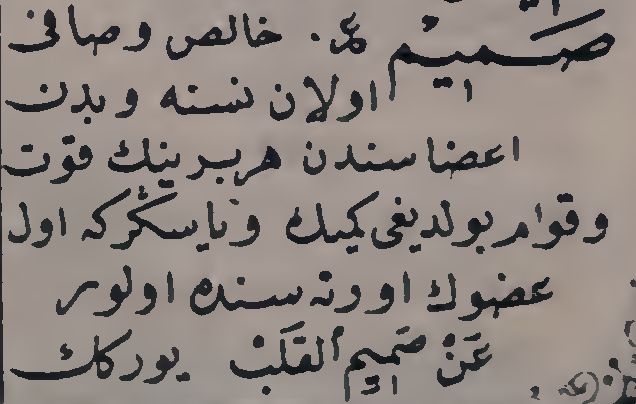 صَمِيمْ ع. خالص و صافى
اولان نسنه و بدن
اعضاسندن هر برينك قوّت
و قوام بولديغى كميك و ياسكّر كه اول
عضوك اورته سنده اولور
عَنْ صَمِيمِ ٱلقَلَبْ يورككـ